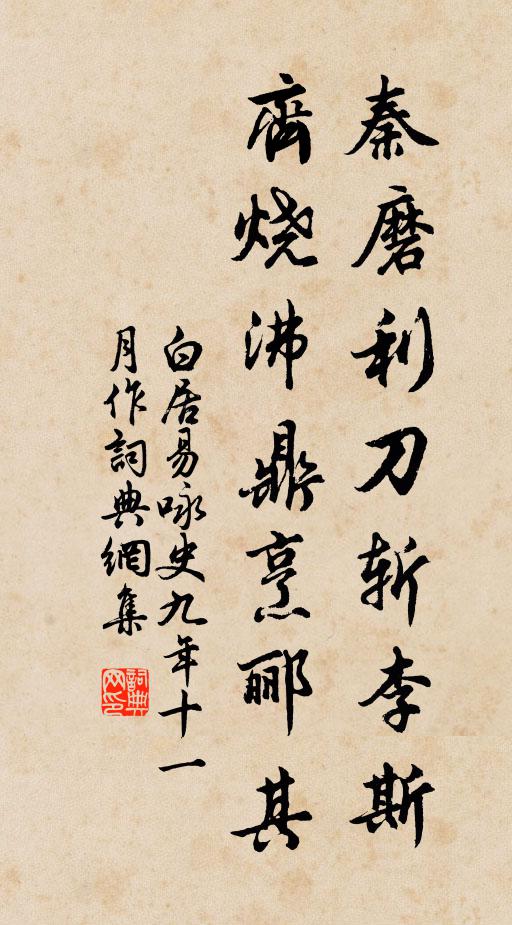 秦磨利刀斩李斯
齊烧沸鼎烹郦其
白居易咏史九年十一
月作詞典網集
詞典
网印